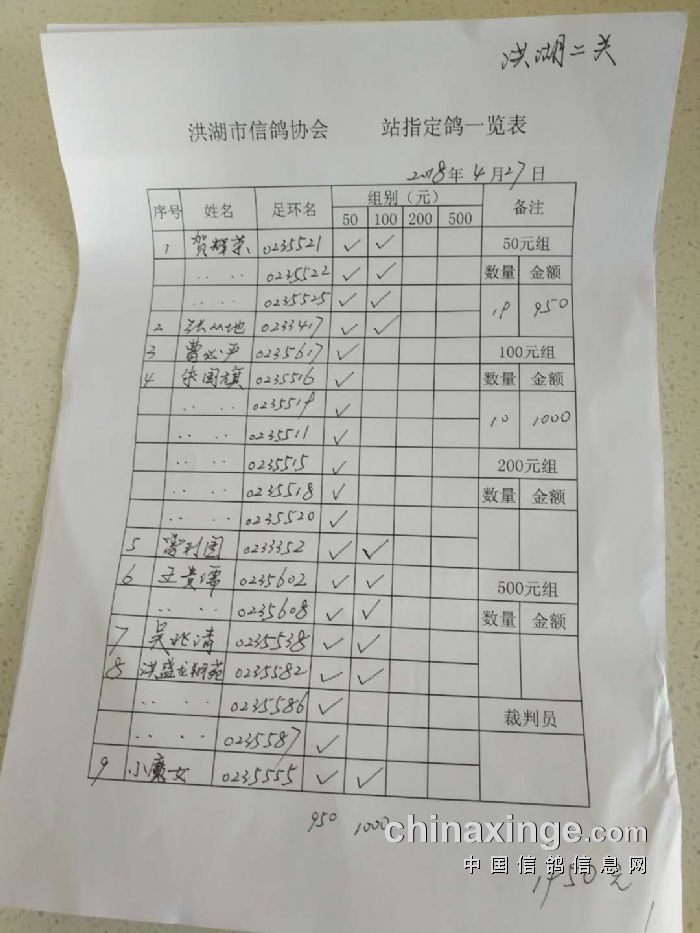 洪湖二关
洪湖市信鸽协会 站指定鸽一览表
2018年4月27日
序号 姓名 足环名 组别（元） 备注
50 100 200 500
1 贺辉荣 0235521 ✓ ✓ 50元组
‥ ‥ 0235522 ✓ ✓ 数量 金额
‥ ‥ 0235525 ✓ ✓ 19 950
2 张 地 0233417 ✓ ✓
3 曹 平 0235617 ✓ 100元组
4 朱国旗 0235516 ✓ 数量 金额
‥ ‥ 0235519 ✓ 10 1000
‥ ‥ 0235511 ✓
‥ ‥ 0235515 ✓ 200元组
‥ ‥ 0235518 ✓ 数量 金额
‥ ‥ 0235520 ✓
5 利国 0233352 ✓ ✓
6 王贵儒 0235602 ✓ ✓ 500元组
‥ ‥ 0235608 ✓ ✓ 数量 金额
7 吴兆清 0235538 ✓ ✓
8 洪盛龙翔苑 0235582 ✓ ✓
‥ ‥ 0235586 ✓ 裁判员
‥ ‥ 0235587 ✓
9 小魔女 0235555 ✓ ✓
950 1000
chinaxinge.com
中国信鸽信息网
1950元